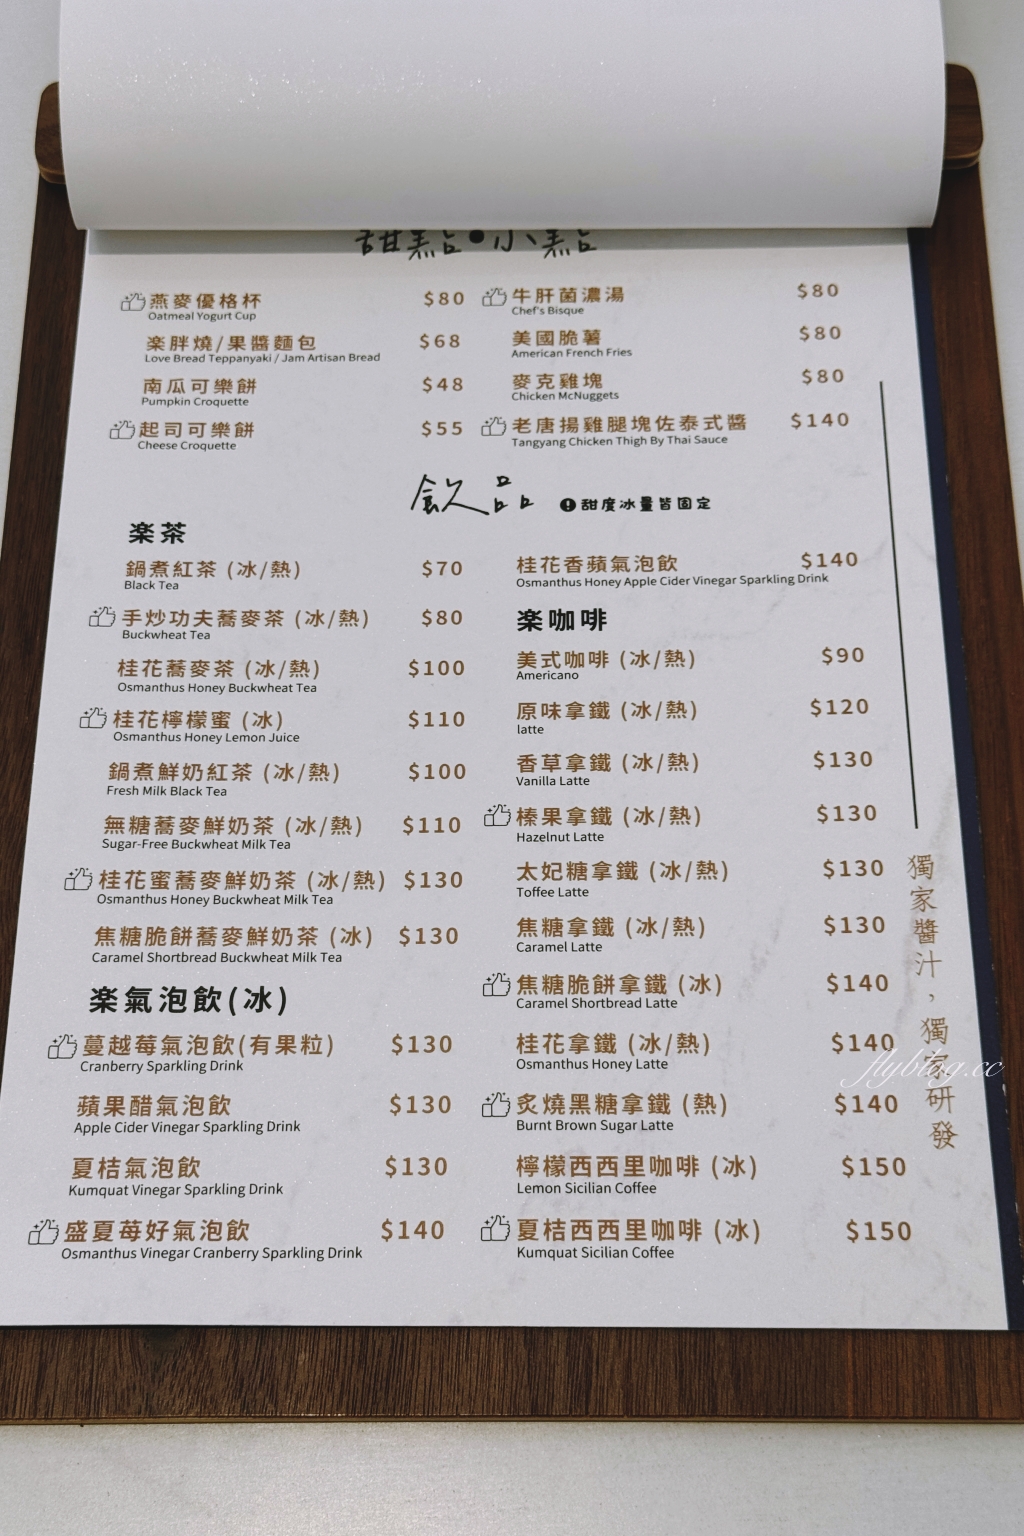 甜點•小點
燕麥優格杯 $80
Oatmeal Yogurt Cup
楽胖燒/果醬麵包 $68
Love Bread Teppanyaki / Jam Artisan Bread
南瓜可樂餅 $48
Pumpkin Croquette
起司可樂餅 $55
Cheese Croquette
牛肝菌濃湯 $80
Chef's Bisque
美國脆薯 $80
American French Fries
麥克雞塊 $80
Chicken McNuggets
老唐揚雞腿塊佐泰式醬 $140
Tangyang Chicken Thigh By Thai Sauce
飲品 ❗甜度冰量皆固定
楽茶
鍋煮紅茶 (冰/熱) $70
Black Tea
手炒功夫蕎麥茶 (冰/熱) $80
Buckwheat Tea
桂花蕎麥茶 (冰/熱) $100
Osmanthus Honey Buckwheat Tea
桂花檸檬蜜 (冰) $110
Osmanthus Honey Lemon Juice
鍋煮鮮奶紅茶 (冰/熱) $100
Fresh Milk Black Tea
無糖蕎麥鮮奶茶 (冰/熱) $110
Sugar-Free Buckwheat Milk Tea
桂花蜜蕎麥鮮奶茶 (冰/熱) $130
Osmanthus Honey Buckwheat Milk Tea
焦糖脆餅蕎麥鮮奶茶 (冰) $130
Caramel Shortbread Buckwheat Milk Tea
楽氣泡飲(冰)
蔓越莓氣泡飲(有果粒) $130
Cranberry Sparkling Drink
蘋果醋氣泡飲 $130
Apple Cider Vinegar Sparkling Drink
夏桔氣泡飲 $130
Kumquat Vinegar Sparkling Drink
盛夏苺好氣泡飲 $140
Osmanthus Vinegar Cranberry Sparkling Drink
桂花香蘋氣泡飲 $140
Osmanthus Honey Apple Cider Vinegar Sparkling Drink
楽咖啡
美式咖啡 (冰/熱) $90
Americano
原味拿鐵 (冰/熱) $120
latte
香草拿鐵 (冰/熱) $130
Vanilla Latte
榛果拿鐵 (冰/熱) $130
Hazelnut Latte
太妃糖拿鐵 (冰/熱) $130
Toffee Latte
焦糖拿鐵 (冰/熱) $130
Caramel Latte
焦糖脆餅拿鐵 (冰) $140
Caramel Shortbread Latte
桂花拿鐵 (冰/熱) $140
Osmanthus Honey Latte
炙燒黑糖拿鐵 (熱) $140
Burnt Brown Sugar Latte
檸檬西西里咖啡 (冰) $150
Lemon Sicilian Coffee
夏桔西西里咖啡 (冰) $150
Kumquat Sicilian Coffee
獨家醬汁，獨家研發
flyblog.cc